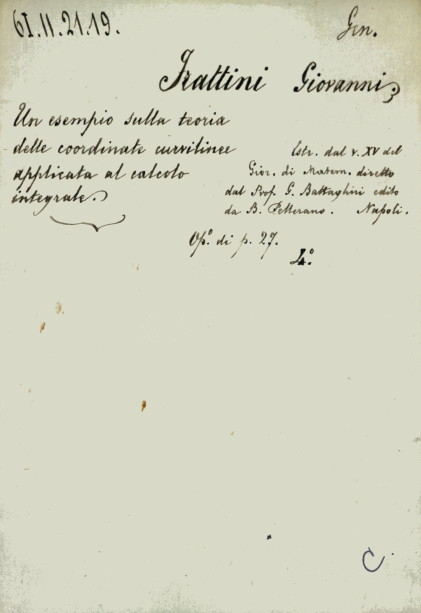 61.11.21.19.
Gen.
Frattini Giovanni;
Un esempio sulla teoria
delle coordinate curvilinee
applicata al calcolo
integrale.
Estr. dal v. XV del
Gior. di Matem. diretto
dal Prof. G. Battaglini edito
da B. Pellerano. Napoli.
Op.° di p. 27.
4.°
C